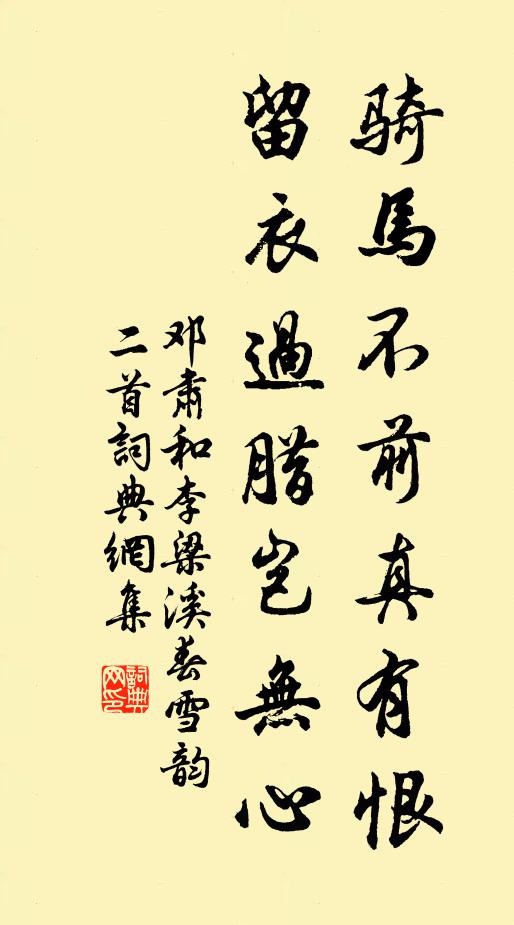 騎馬不前真有恨
留衣過腊豈無心
邓肅和李梁溪春雪韵
二首詞典網集
詞典
网印